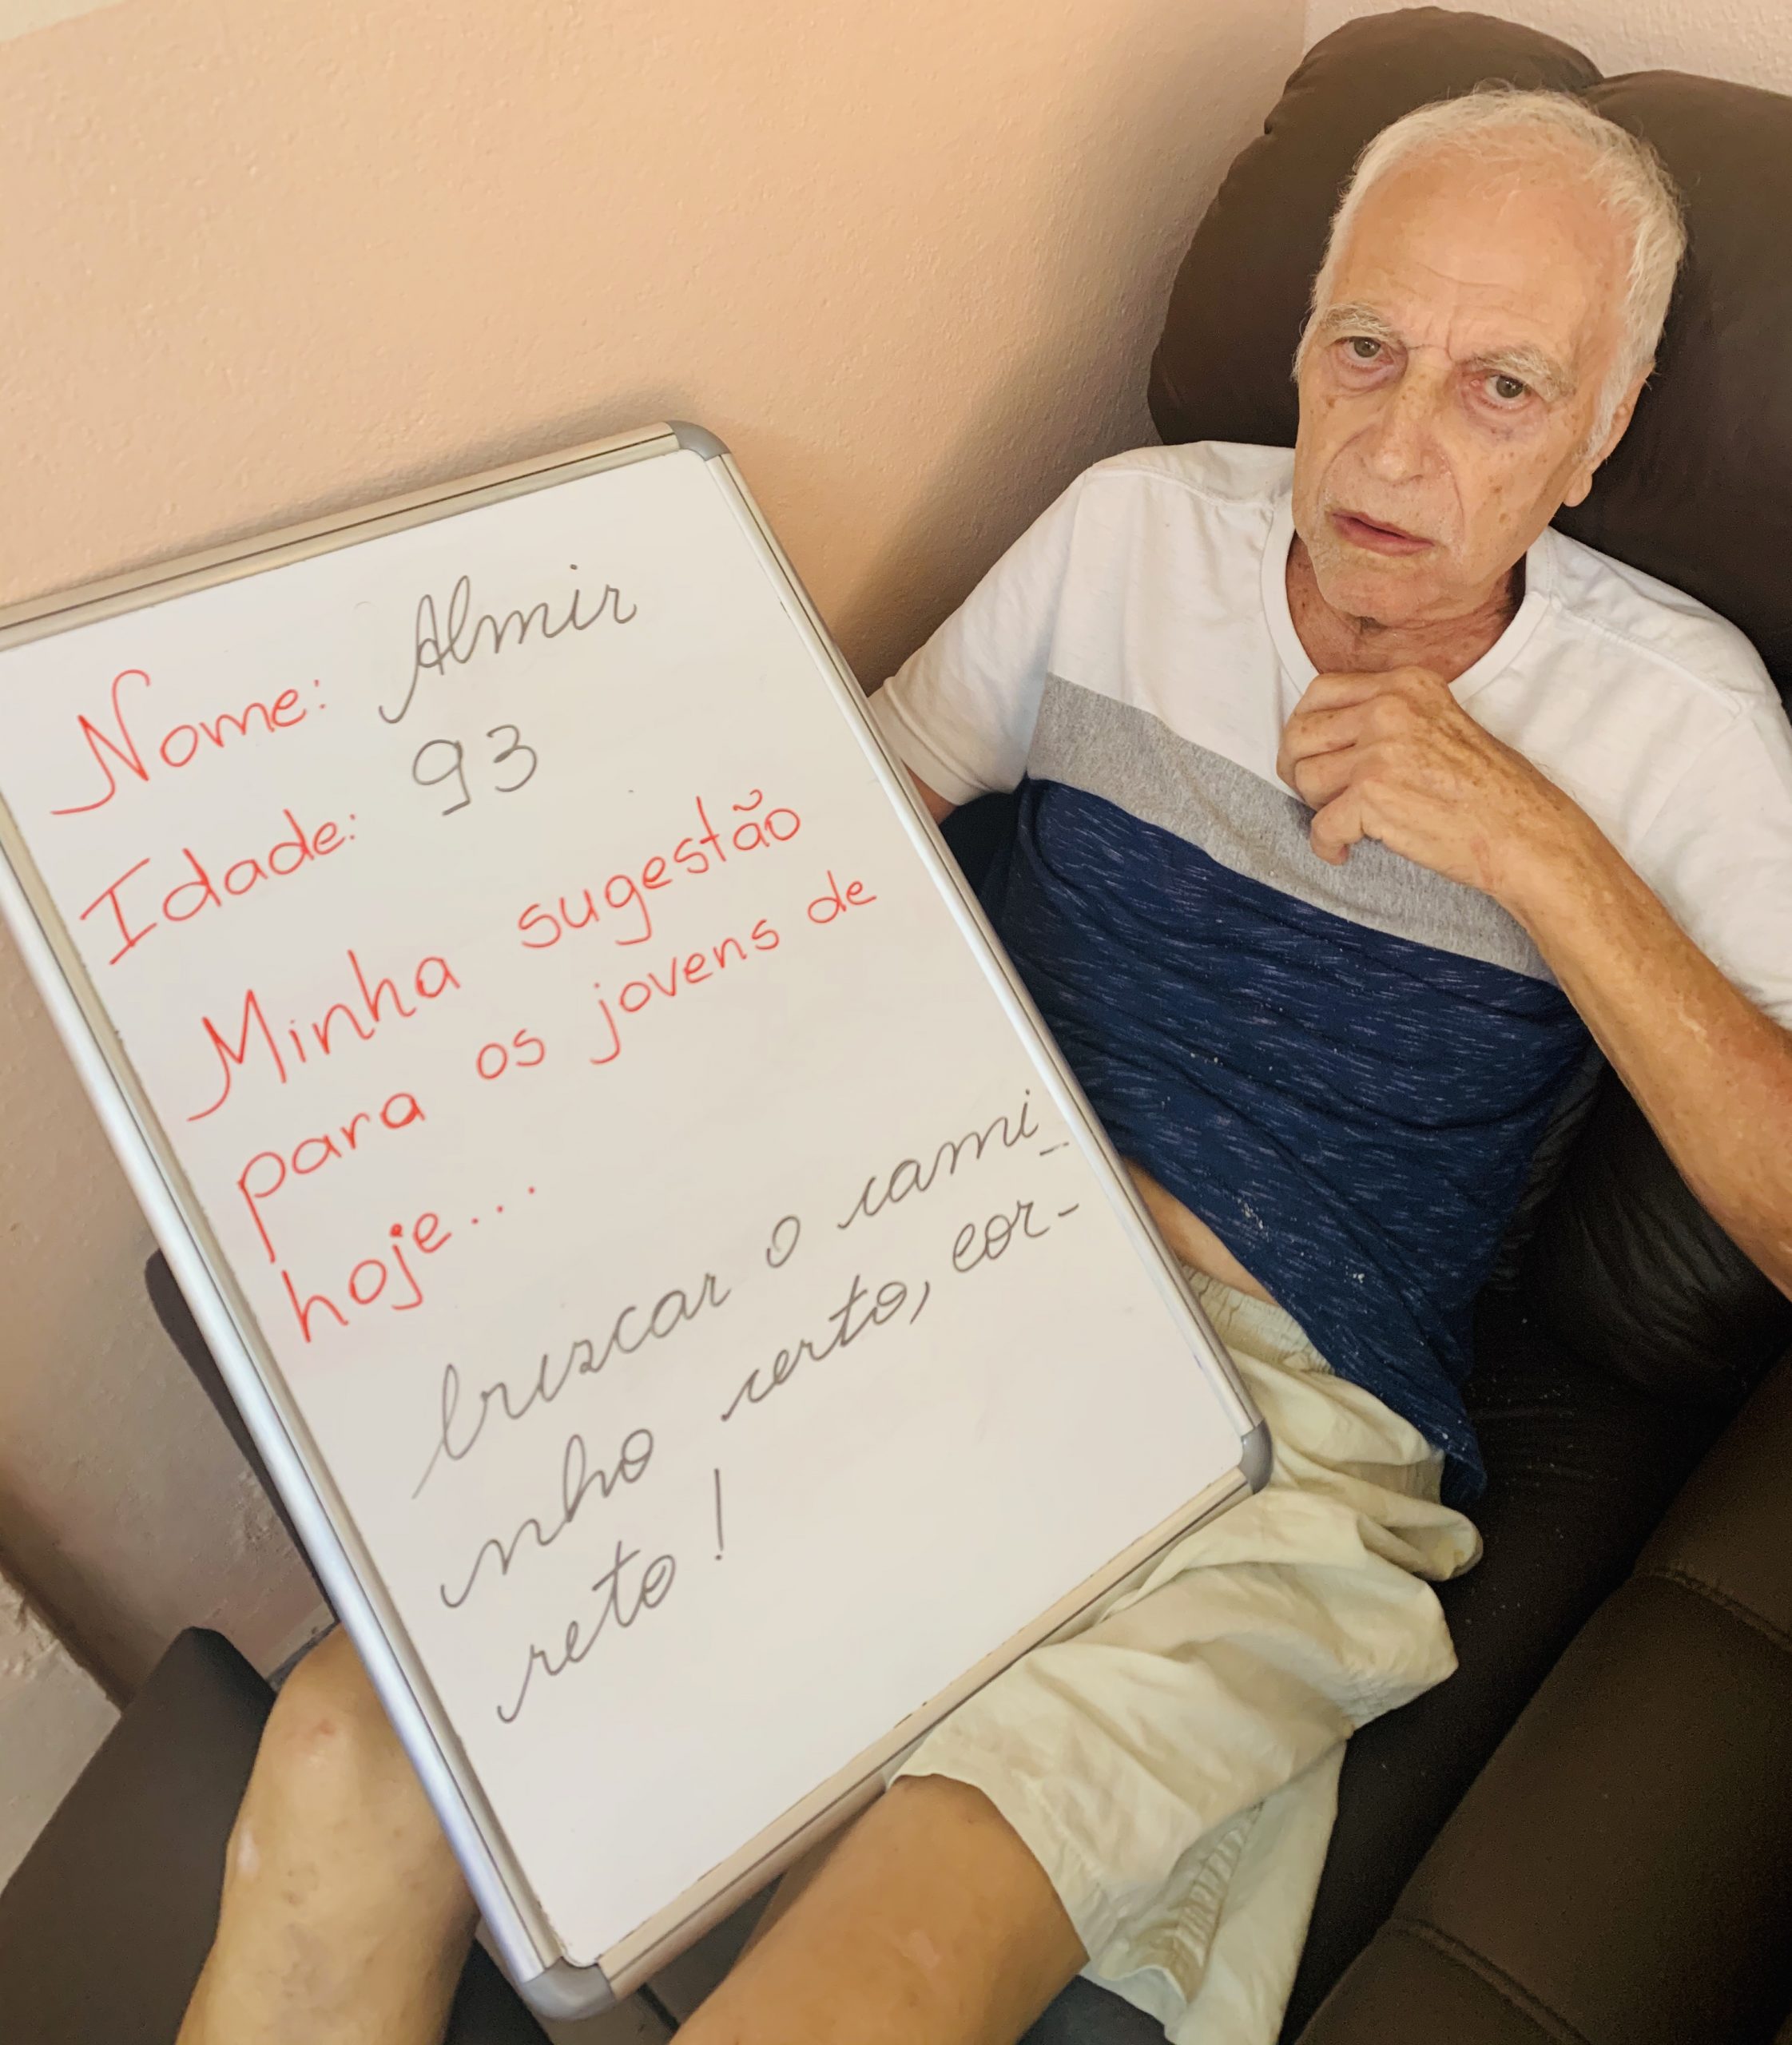 Nome: Almir
Idade: 93
Minha sugestão
para os jovens de
hoje...
buscar o cami_
nho certo, cor-
reto!